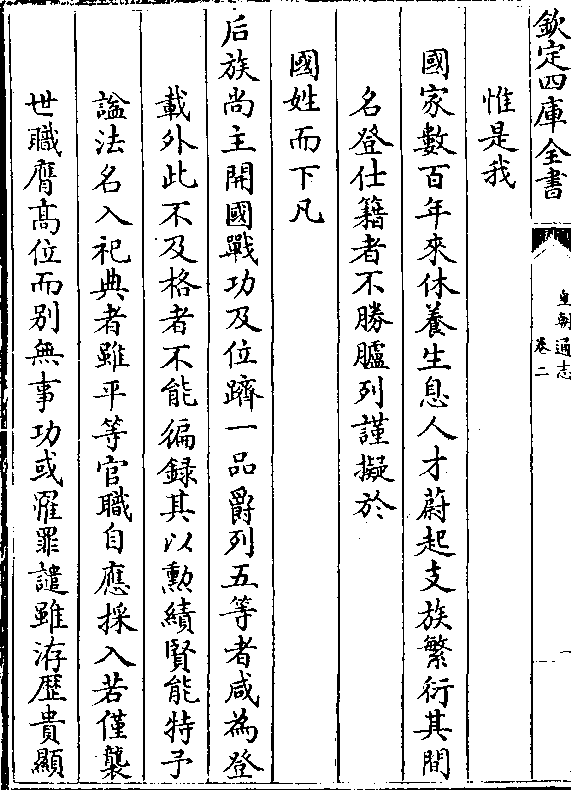 欽定四庫全書
皇朝通志
卷二
惟是我
國家數百年來休養生息人才蔚起支族繁衍其間
名登仕籍者不勝臚列謹擬於
國姓而下凡
后族尚主開國戰功及位躋一品爵列五等者咸為登
載外此不及格者不能徧録其以勲績賢能特予
諡法名入祀典者雖平等官職自應採入若僅襲
世職膺髙位而别無事功或罹罪譴雖洊歴貴顯